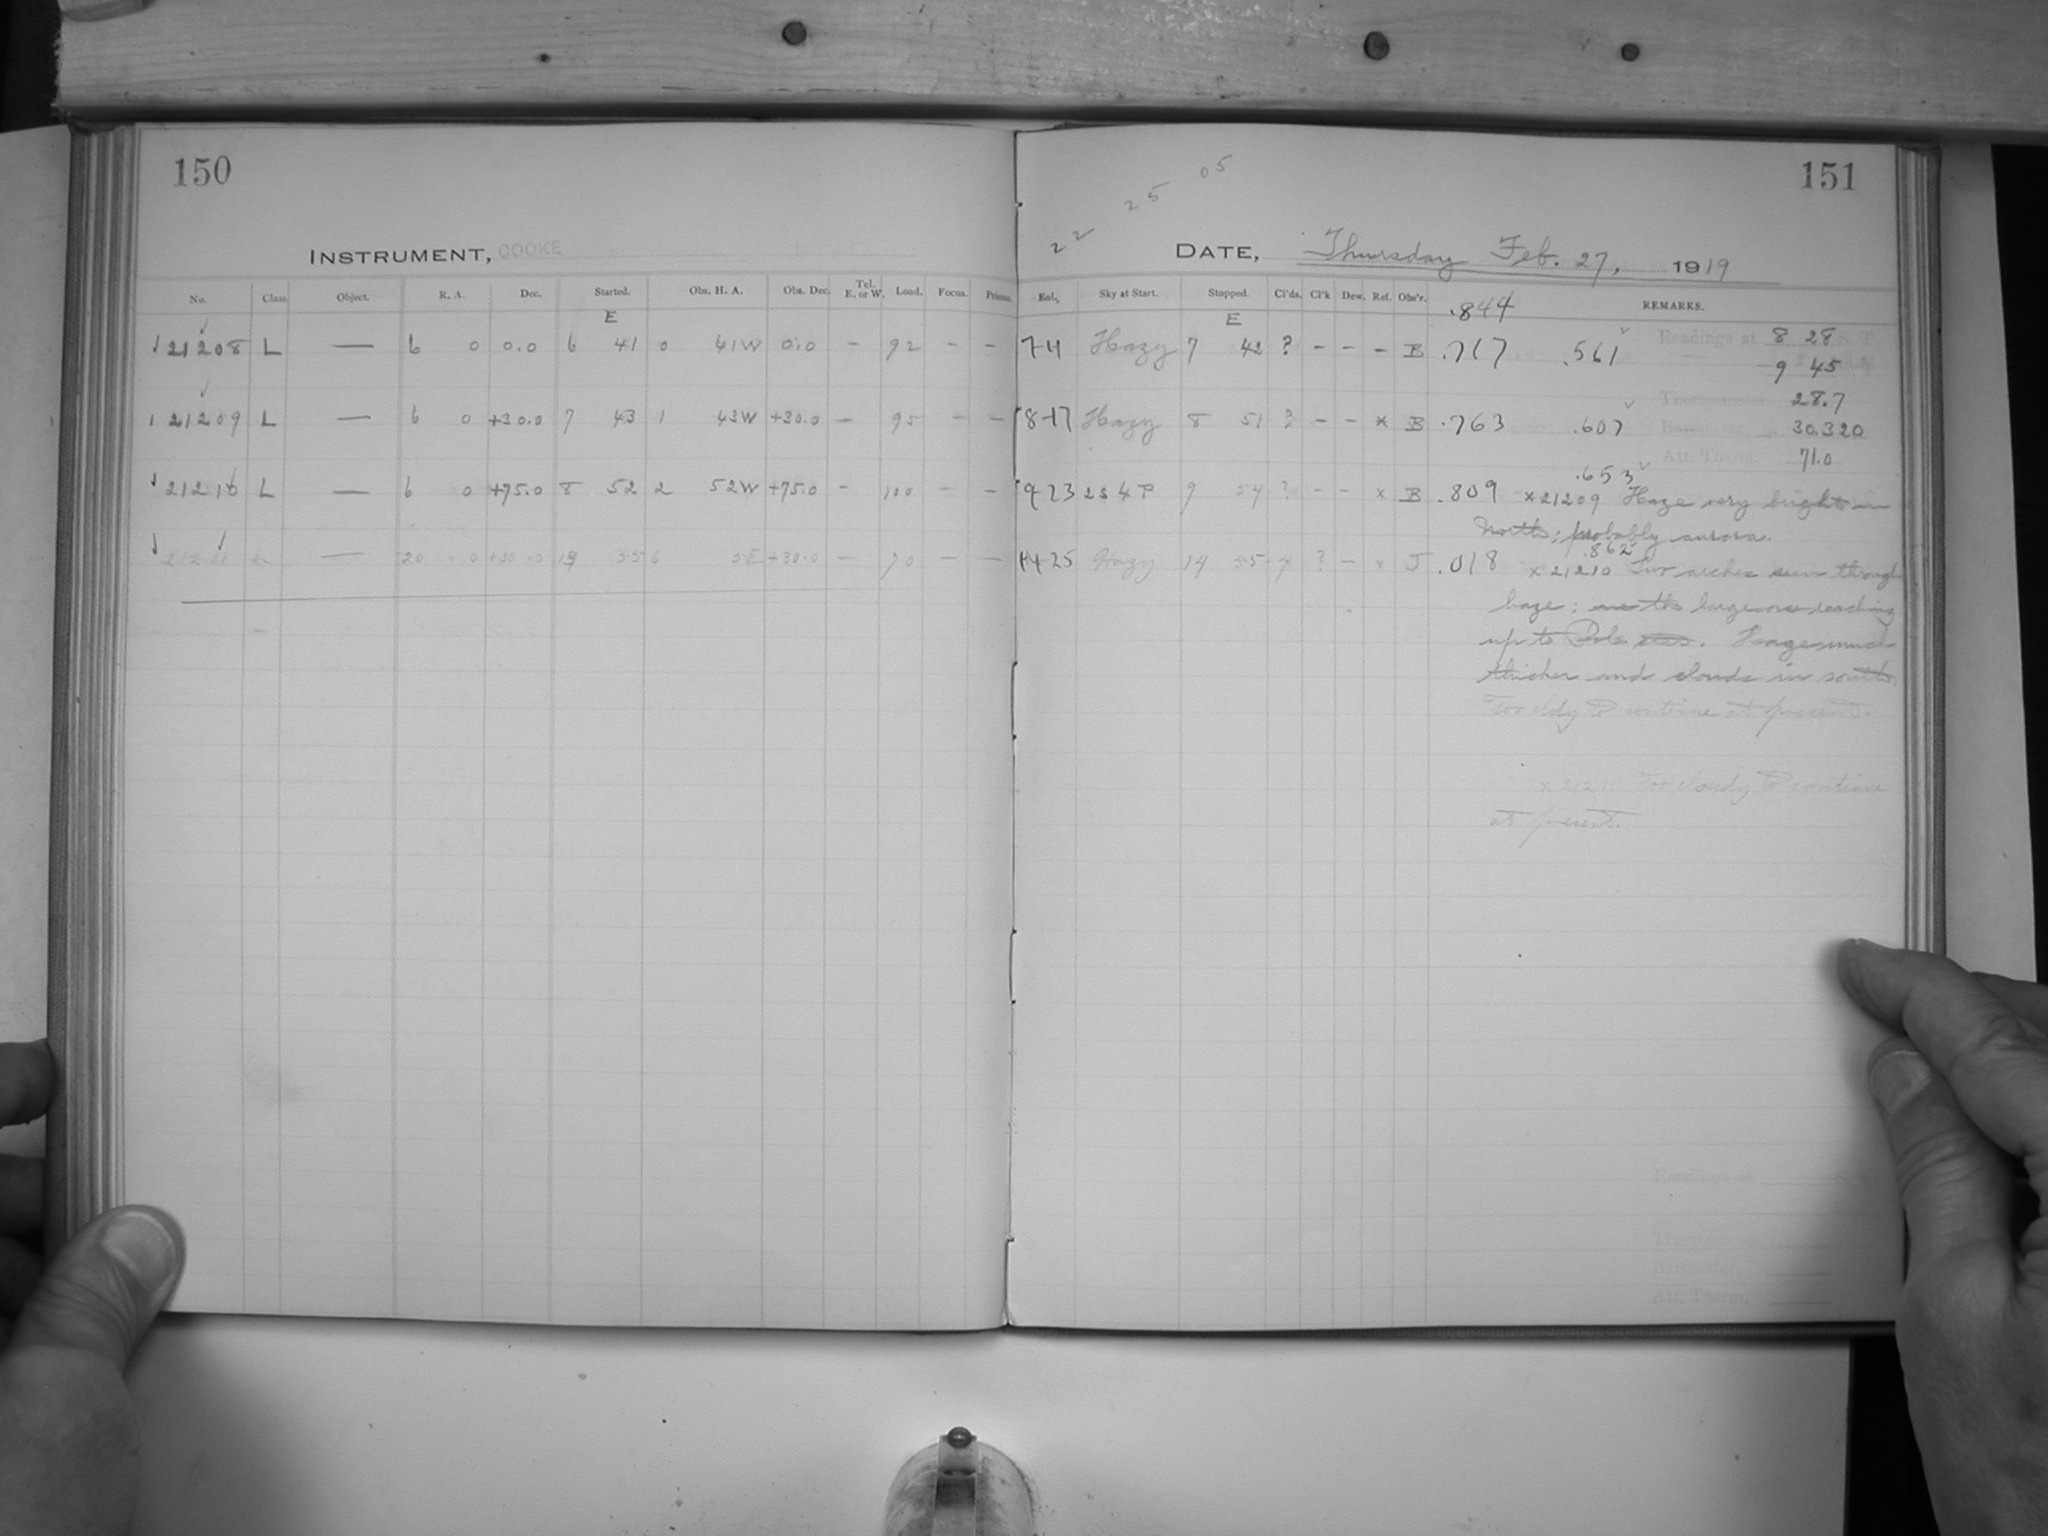 150
INSTRUMENT, COOKE
No. Class Object. R. A. Dec. Started. Obs. H. A. Obs. Dec. Tel. E. or W. Load. Focus. Prisms.
E
21208 L — 6 0 0.0 6 41 0 41W 0.0 — 92 — —
21209 L — 6 0 +30.0 7 43 1 43W +30.0 — 95 — —
21210 L — 6 0 +75.0 8 52 2 52W +75.0 — 100 — —
21211 L — 20 0 +30.0 13 55 6 5E +30.0 — 70 — —
151
22 25 05
DATE, Thursday Feb. 27, 1919
Exl. Sky at Start. Stopped. Cl'ds. Cl'k Dew. Ref. Obs'r. .844 REMARKS.
E
Hazy 7 42 ? — — — B .717 .561 Readings at 8 28 S. T.
9 45
Thermometer 28.7
Hazy 8 51 ? — — x B .763 .607 Barometer. 30.320
Att. Therm. 71.0
.653
2S4P 9 54 ? — — x B .809 x 21209 Haze very bright in
North; probably aurora.
.862
Hazy 14 55 ? — x J .018 x 21210 Two arches seen through
haze; large one reaching
up to Pole star. Haze much
thicker and clouds in south.
Too cldy to continue at present.
x 21211 Too cloudy to continue
at present.
Readings at S. T.
Thermometer
Barometer.
Att. Therm.